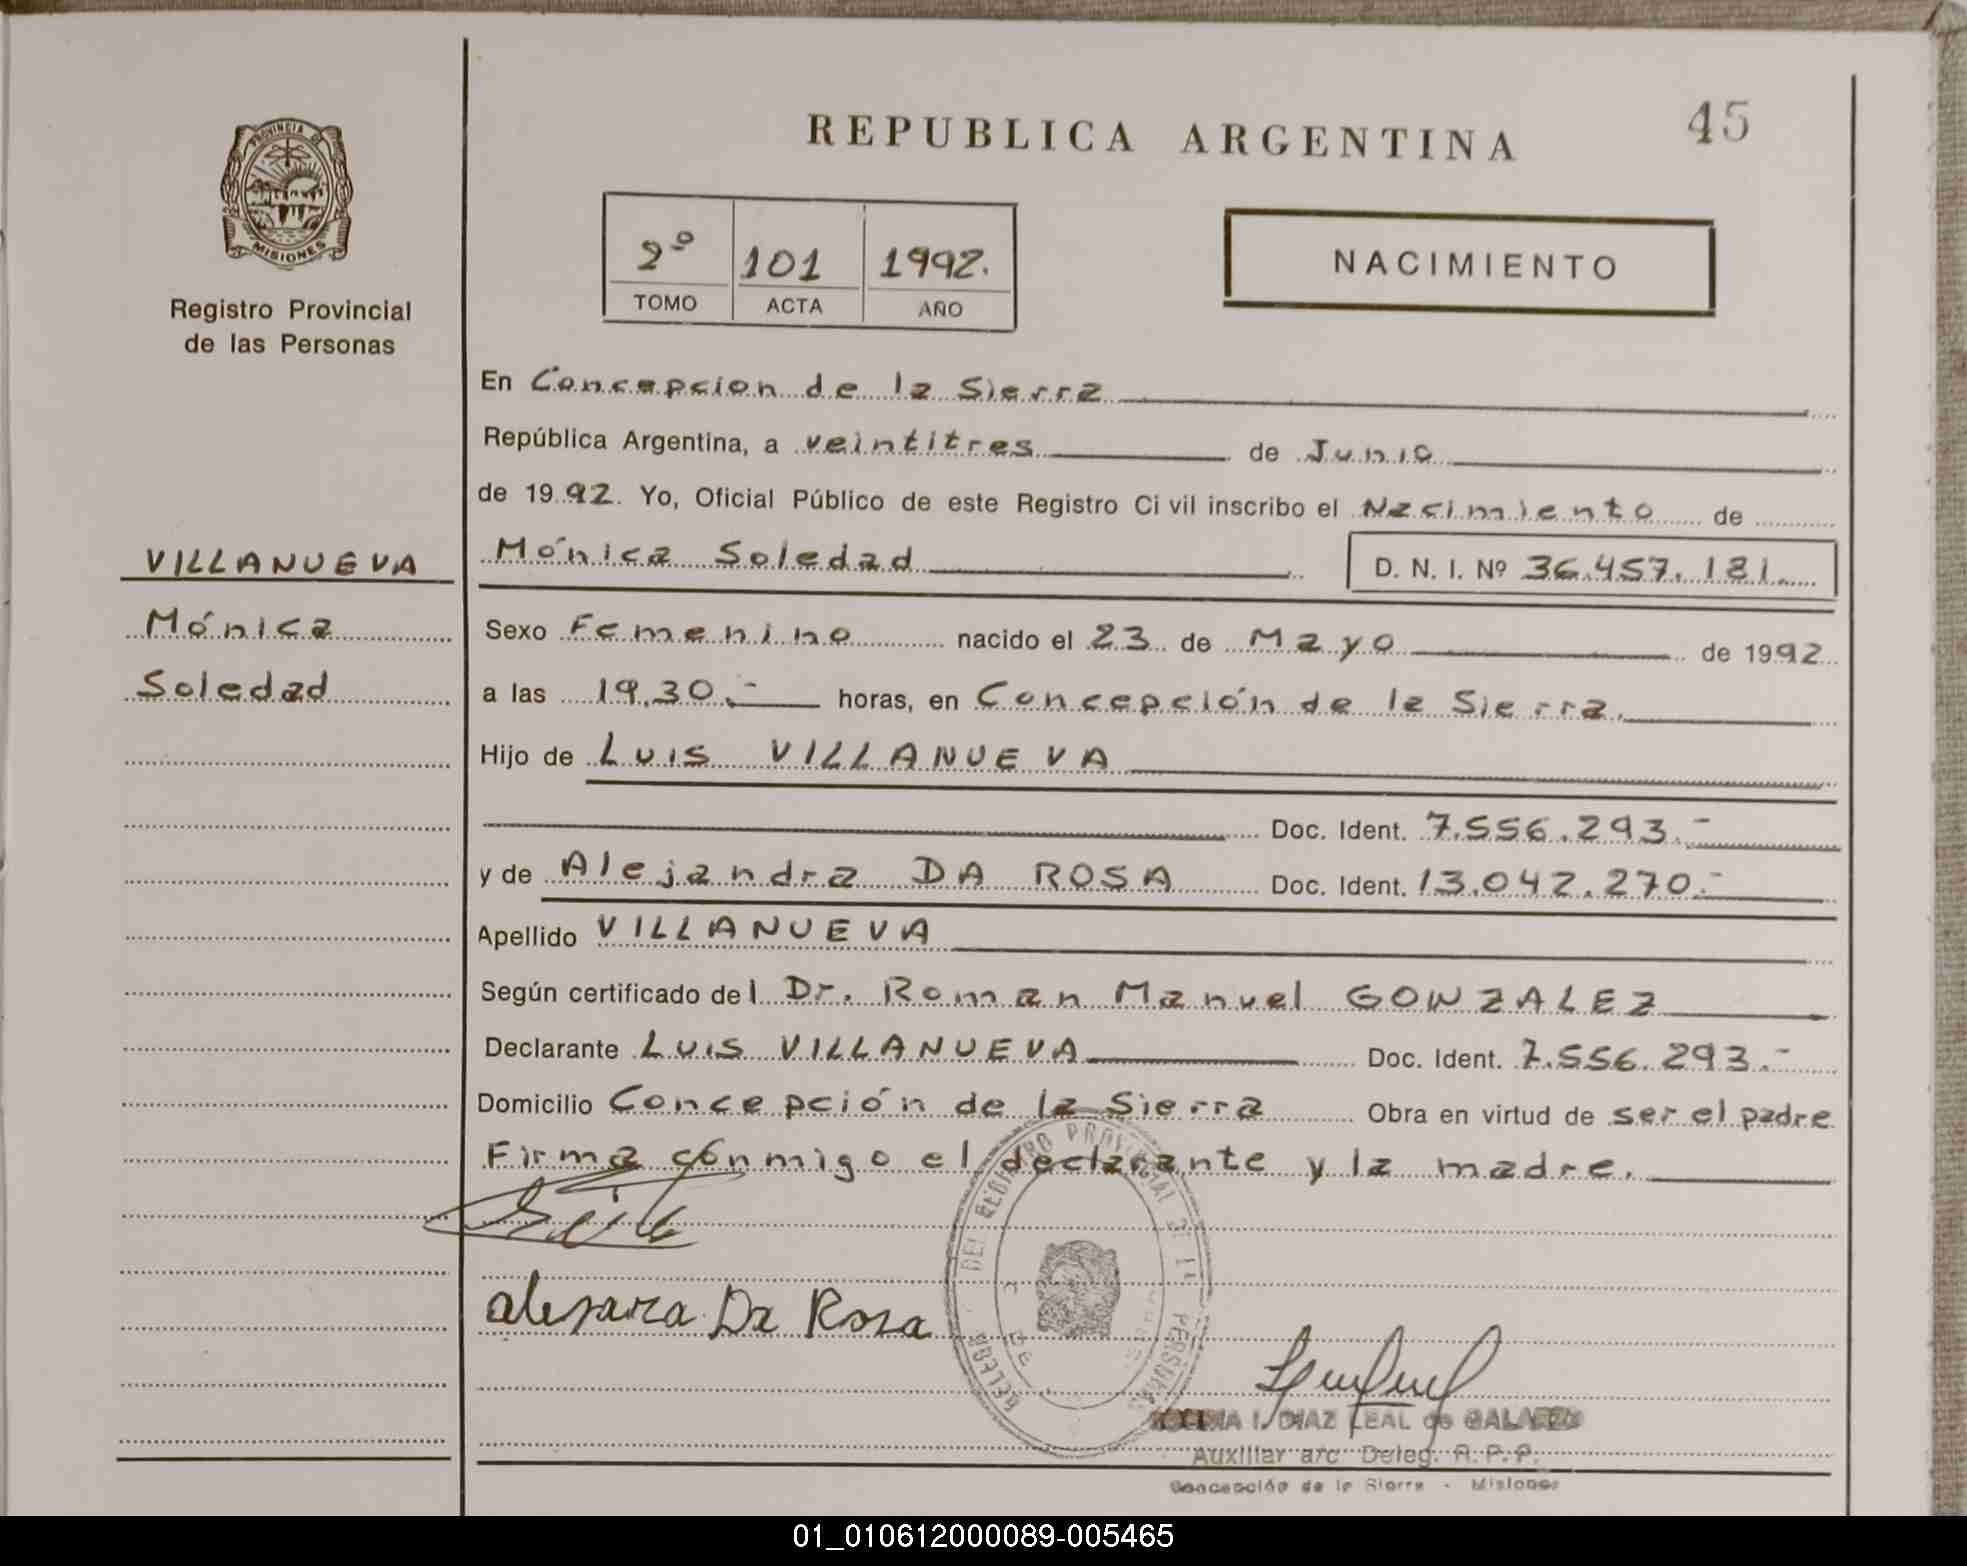 REPUBLICA ARGENTINA
45
PROVINCIA D
MISIONES
Registro Provincial
de las Personas
2º 101 1992.
TOMO ACTA AÑO
NACIMIENTO
VILLANUEVA
Mónica
Soledad
En Concepcion de la Sierra
República Argentina, a veintitres de Junio
de 1992. Yo, Oficial Público de este Registro Ci vil inscribo el Nacimiento de
Mónica Soledad D. N. I. Nº 36.457.181
Sexo Femenino nacido el 23 de Mayo de 1992
a las 19.30.- horas, en Concepción de la Sierra.
Hijo de Luis VILLANUEVA
Doc. Ident. 7.556.293.-
y de Alejandra DA ROSA Doc. Ident. 13.042.270.-
Apellido VILLANUEVA
Según certificado del Dr. Roman Manuel GONZALEZ
Declarante Luis VILLANUEVA Doc. Ident. 7.556.293.-
Domicilio Concepción de la Sierra Obra en virtud de ser el padre
Firma conmigo el declarante y la madre.
DEL REGISTRO PROVINCIAL DE PERSONAS
Da Rosa
I. DIAZ LEAL de
Auxiliar a/c Deleg. R. P. P.
Concepción de la Sierra - Misiones
01_010612000089-005465